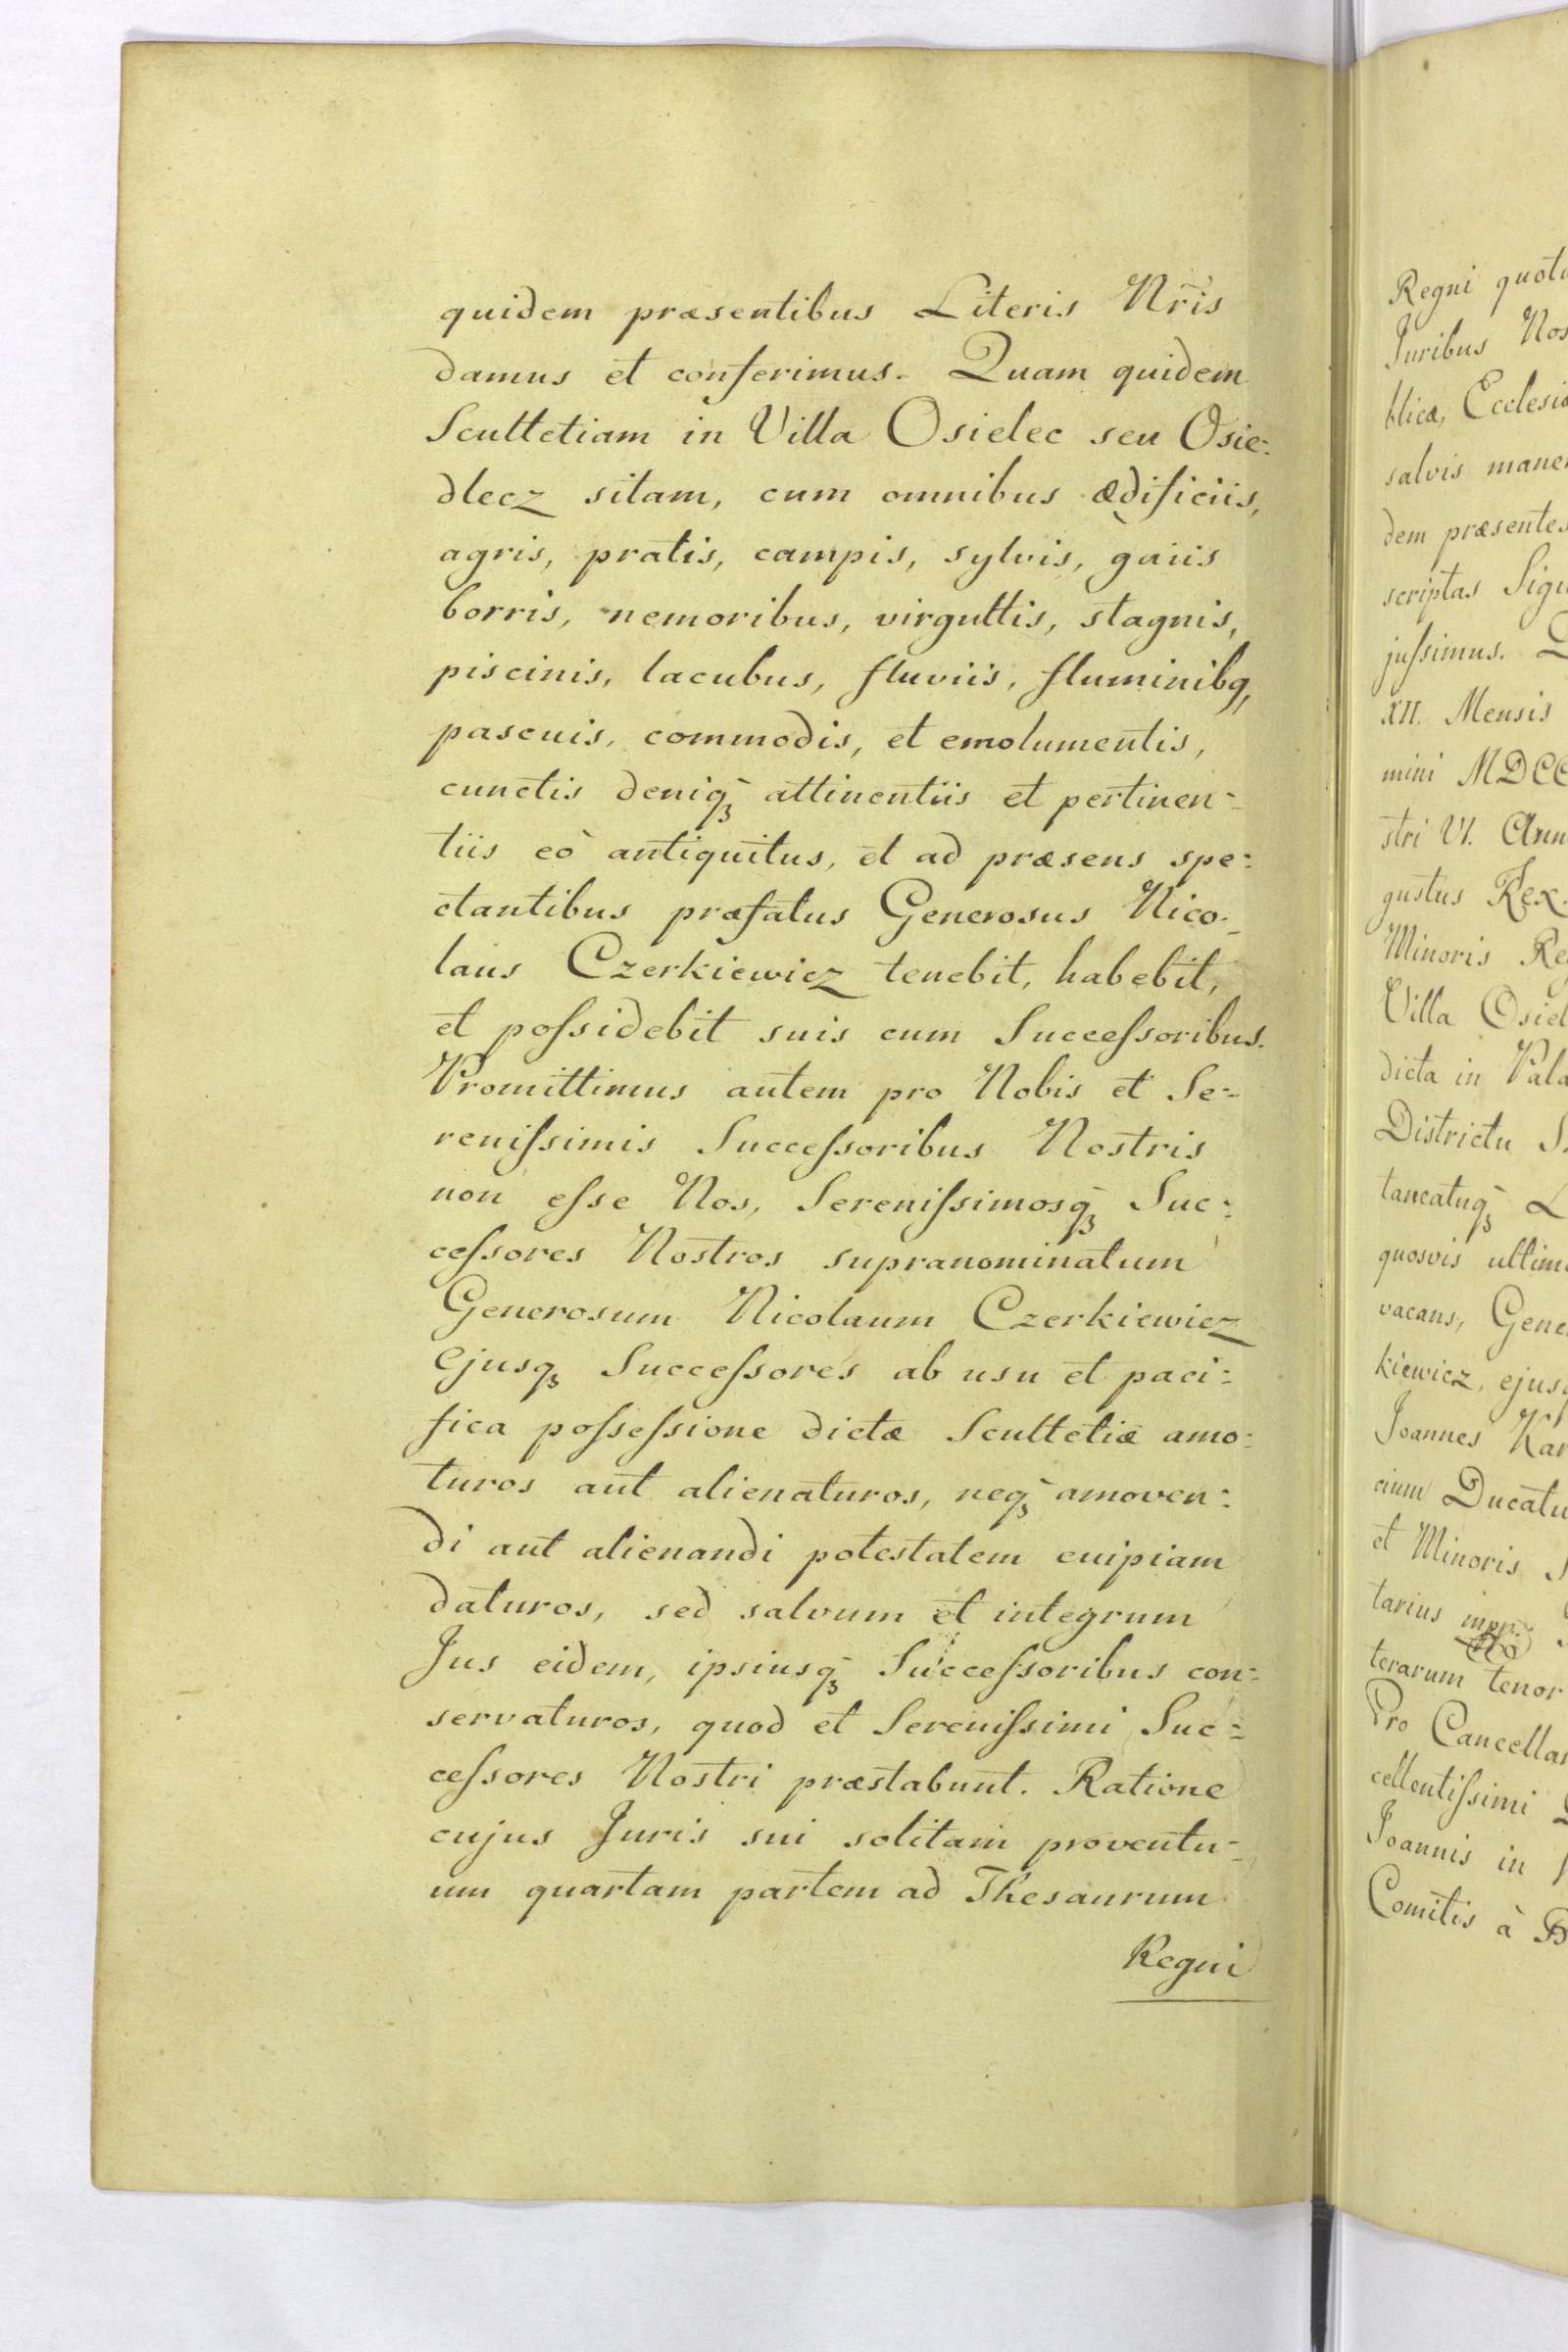 quidem præsentibus Literis Nr̃is
damus et conferimus. Quam quidem
Scultetiam in Villa Osielec seu Osie-
dlecz sitam, cum omnibus ædificiis,
agris, pratis, campis, sylvis, gaiis
borris, nemoribus, virgultis, stagnis,
piscinis, lacubus, fluviis, fluminibq,
pascuis, commodis, et emolumentis,
cunctis deniqꝫ attinentiis et pertinen-
tiis eò antiquitus, et ad præsens spe-
ctantibus præfatus Generosus Nico-
laus Czerkiewicz tenebit, habebit,
et poſsidebit suis cum Succeſsoribus.
Promittimus autem pro Nobis et Se-
reniſsimis Succeſsoribus Nostris
non eſse Nos, Sereniſsimosqꝫ Suc-
ceſsores Nostros supranominatum
Generosum Nicolaum Czerkiewicz
ejusqꝫ Succeſsores ab usu et paci-
fica poſseſsione dictæ Scultetiæ amo-
turos aut alienaturos, neqꝫ amoven-
di aut alienandi potestatem cuipiam
daturos, sed salvum et integrum
Jus eidem, ipsiusqꝫ Succeſsoribus con-
servaturos, quod et Sereniſsimi Suc-
ceſsores Nostri præstabunt. Ratione
cujus Juris sui solitam proventu-
um quartam partem ad Thesaurum
Regni
Regni
Juribus
blicæ,
salvis
dem præsentes
scriptas
juſsimus.
XII. Mensis
mini
stri VI.
gustus Rex.
Minoris
Villa
dicta in
Districtu
taneatuqꝫ
quosvis
vacans,
kiewicz,
Joannes
cium
et Minoris
tarius mpp.
terarum tenor
Pro
cellentiſsimi
Joannis in
Comitis à